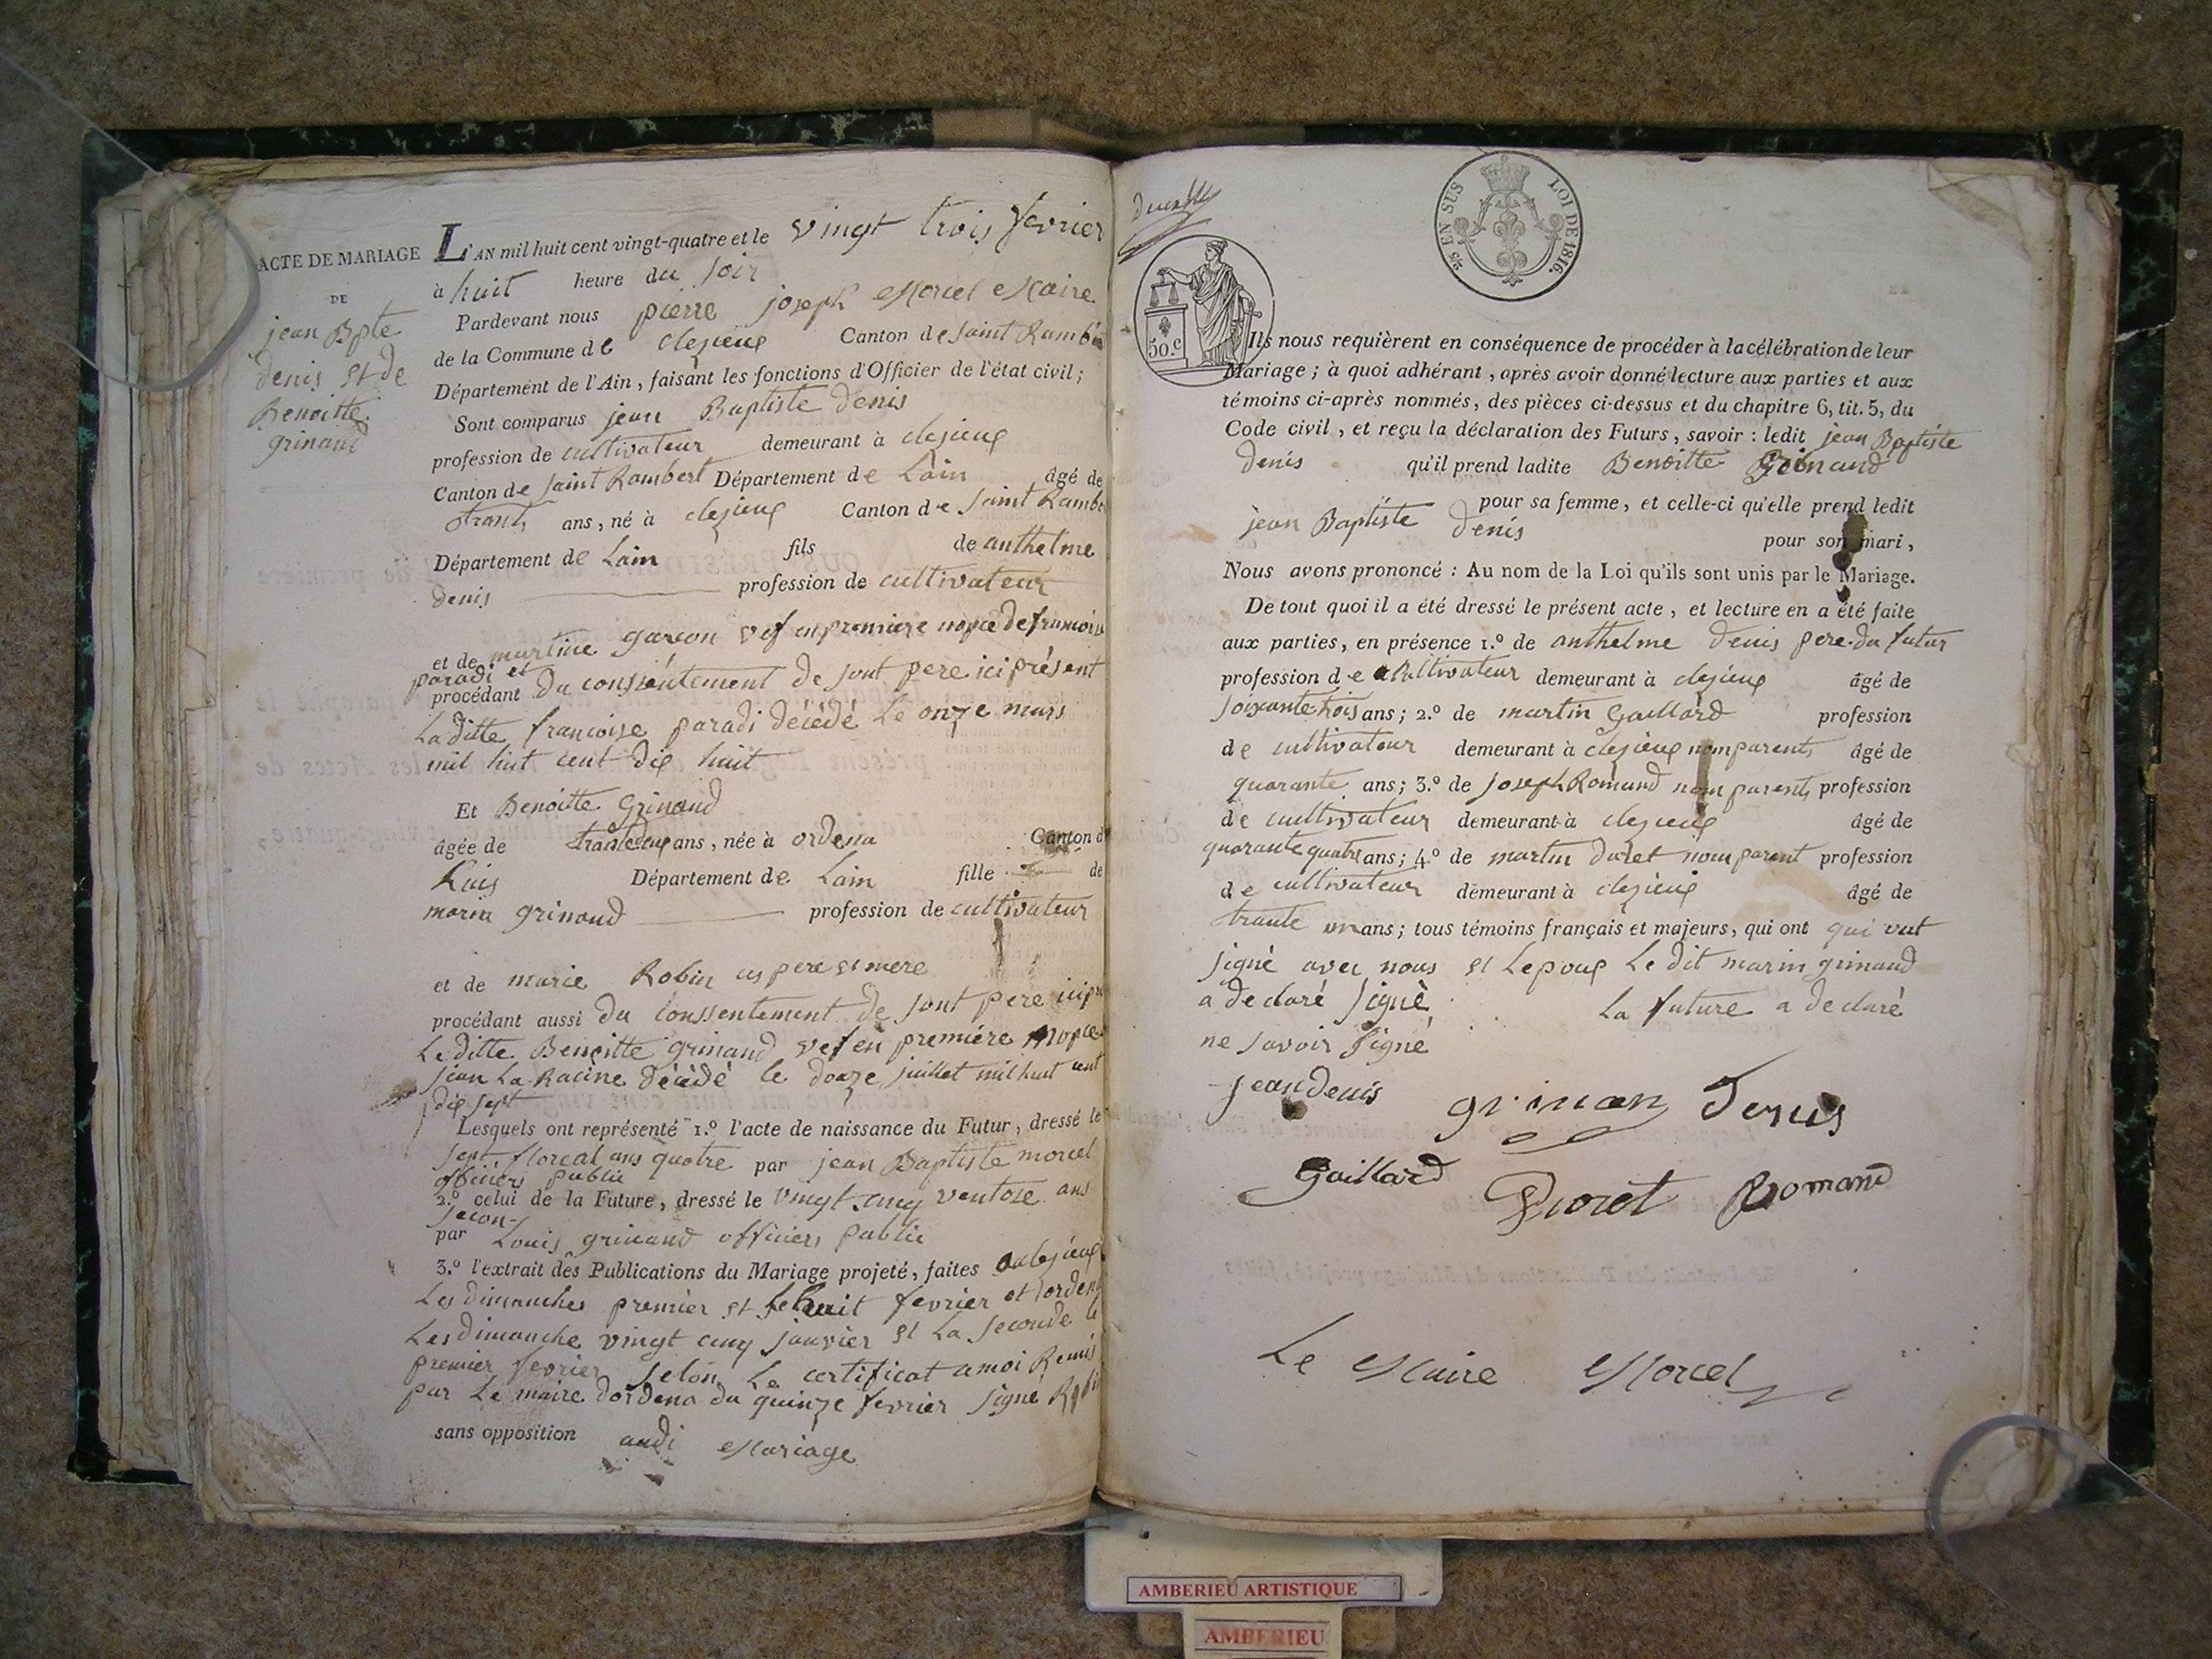 ACTE DE MARIAGE
DE
jean Bpte
denis et de
Benoitte
grinand
L'AN mil huit cent vingt-quatre et le vingt trois fevrier
à huit heure du soir
Pardevant nous pierre joseph Morcel Maire
de la Commune de clezieux Canton de saint Rambert
Département de l'Ain, faisant les fonctions d'Officier de l'état civil;
Sont comparus jean Baptiste denis
profession de cultivateur demeurant à clezieux
Canton de saint Rambert Département de Lain âgé de
trante ans, né à clezieux Canton de saint Rambe
Département de Lain fils de anthelme
denis profession de cultivateur
et de martine garcon vef en premiere nopce de francoise
paradi et
procédant du consentement de sont pere ici présent
La ditte francoise paradi décédé le onze mars
mil huit cent dix huit
Et Benoitte Grinand
âgée de trante deux ans, née à ordena Canton d
Luis Département de Lain fille de
marin grinand profession de cultivateur
et de marie Robin ces pere et mere
procédant aussi du conssentement de sont pere ici
Le ditte Benoitte grinand vef en première nopce
jean La Racine décédé le douze juillet mil huit cent
dix sept
Lesquels ont représenté 1.º l'acte de naissance du Futur, dressé le
sept floreal ans quatre par jean Baptiste morcel
officiers public
2.º celui de la Future, dressé le vingt-cinq ventose ans
secon-
par Louis grinand officiers public
3.º l'extrait des Publications du Mariage projeté, faites a clezieux
Les dimanches premier et le huit fevrier et ordena
Les dimanche vingt cinq janvier et La seconde le
premier fevrier selon Le certificat a moi Remis
par Le maire dordena du quinze fevrier signé Robin
sans opposition audi Mariage
25 EN SUS LOI DE 1816.
50.c
Ils nous requièrent en conséquence de procéder à la célébration de leur
Mariage; à quoi adhérant, après avoir donné lecture aux parties et aux
témoins ci-après nommés, des pièces ci-dessus et du chapitre 6, tit. 5, du
Code civil, et reçu la déclaration des Futurs, savoir : ledit jean Baptiste
denis qu'il prend ladite Benoitte Grinand
pour sa femme, et celle-ci qu'elle prend ledit
jean Baptiste denis pour son mari,
Nous avons prononcé : Au nom de la Loi qu'ils sont unis par le Mariage.
De tout quoi il a été dressé le présent acte, et lecture en a été faite
aux parties, en présence 1.º de anthelme denis pere du futur
profession de cultivateur demeurant à clezieux âgé de
soixante trois ans; 2.º de martin Gaillard profession
de cultivateur demeurant à clezieux nom parents âgé de
quarante ans; 3.º de joseph Romand nom parents profession
de cultivateur demeurant à clezieux âgé de
quarante quatre ans; 4.º de martin duret nom parent profession
de cultivateur demeurant à clezieux âgé de
trante un ans; tous témoins français et majeurs, qui ont qui vut
signé avec nous et Lepoux Le dit marin grinand
a declaré signé La future a declaré
ne savoir signé
jean denis grinan Denis
Gaillard Duret Romand
Le Maire Morcel
AMBERIEU ARTISTIQUE
AMBERIEU